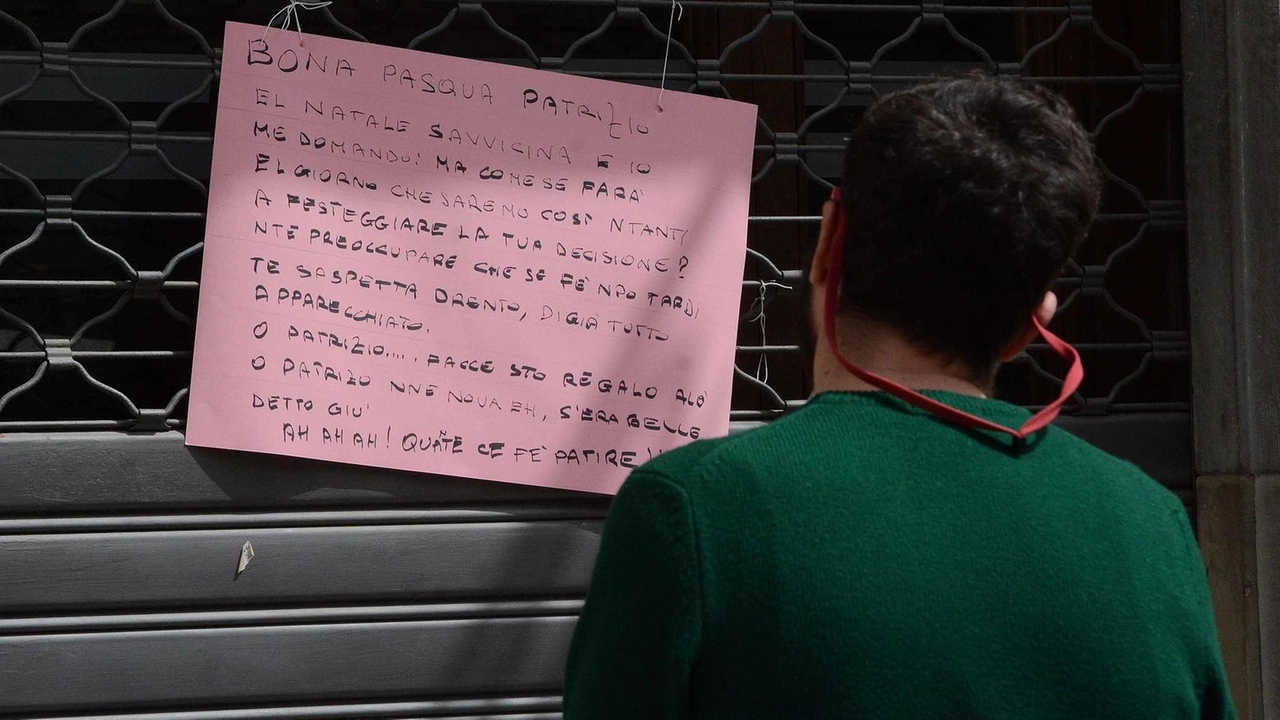 BONA PASQUA PATRIZIO
EL NATALE SAVVICINA E IO
ME DOMANDO: MA COME SE FARA'
EL GIORNO CHE SAREMO COSI' NTANTI
A FESTEGGIARE LA TUA DECISIONE?
NTE PREOCCUPARE CHE SE FE' NPO TARDI
TE SASPETTA DRENTO, DIGIA' TUTTO
APPARECCHIATO.
O PATRIZIO.... FACCE STO REGALO ALO'
O PATRIZO NNE NOVA EH, S'ERA BELLE
DETTO GIU'
AH AH AH! QUAÑTE CE FE' PATIRE